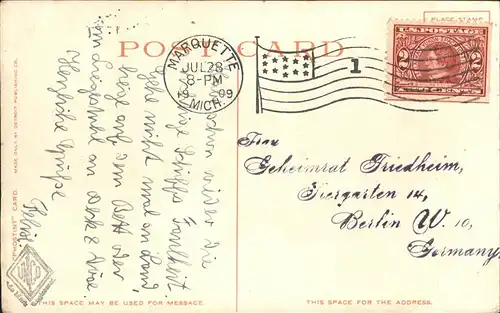 POST CARD
PLACE STAMP
MARQUETTE
JUL 28
8-PM
1909
MICH.
1
U.S. POSTAGE
2 2
Frau
Geheimrat Friedheim,
Tiergarten 14,
Berlin W. 10,
Germany.
schon wieder die
Schiffs Faulheit.
Gehe nicht mal an Land,
liege auf dem Bett oder
im Liegestuhl an Deck &
Herzliche Grüße
"PHOSTINT" CARD.
MADE ONLY BY DETROIT PUBLISHING CO.
THIS SPACE MAY BE USED FOR MESSAGE.
THIS SPACE IS FOR THE ADDRESS.